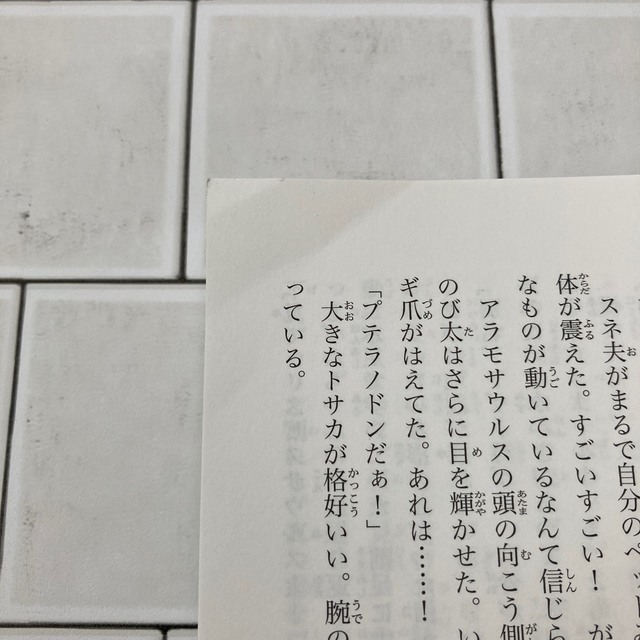 スネ夫がまるで自分のペット
体が震えた。すごいすごい！　が
なものが動いているなんて信じら
アラモサウルスの頭の向こう側
のび太はさらに目を輝かせた。い
ギ爪がはえてた。あれは……！
「プテラノドンだぁ！」
大きなトサカが格好いい。腕の
っている。